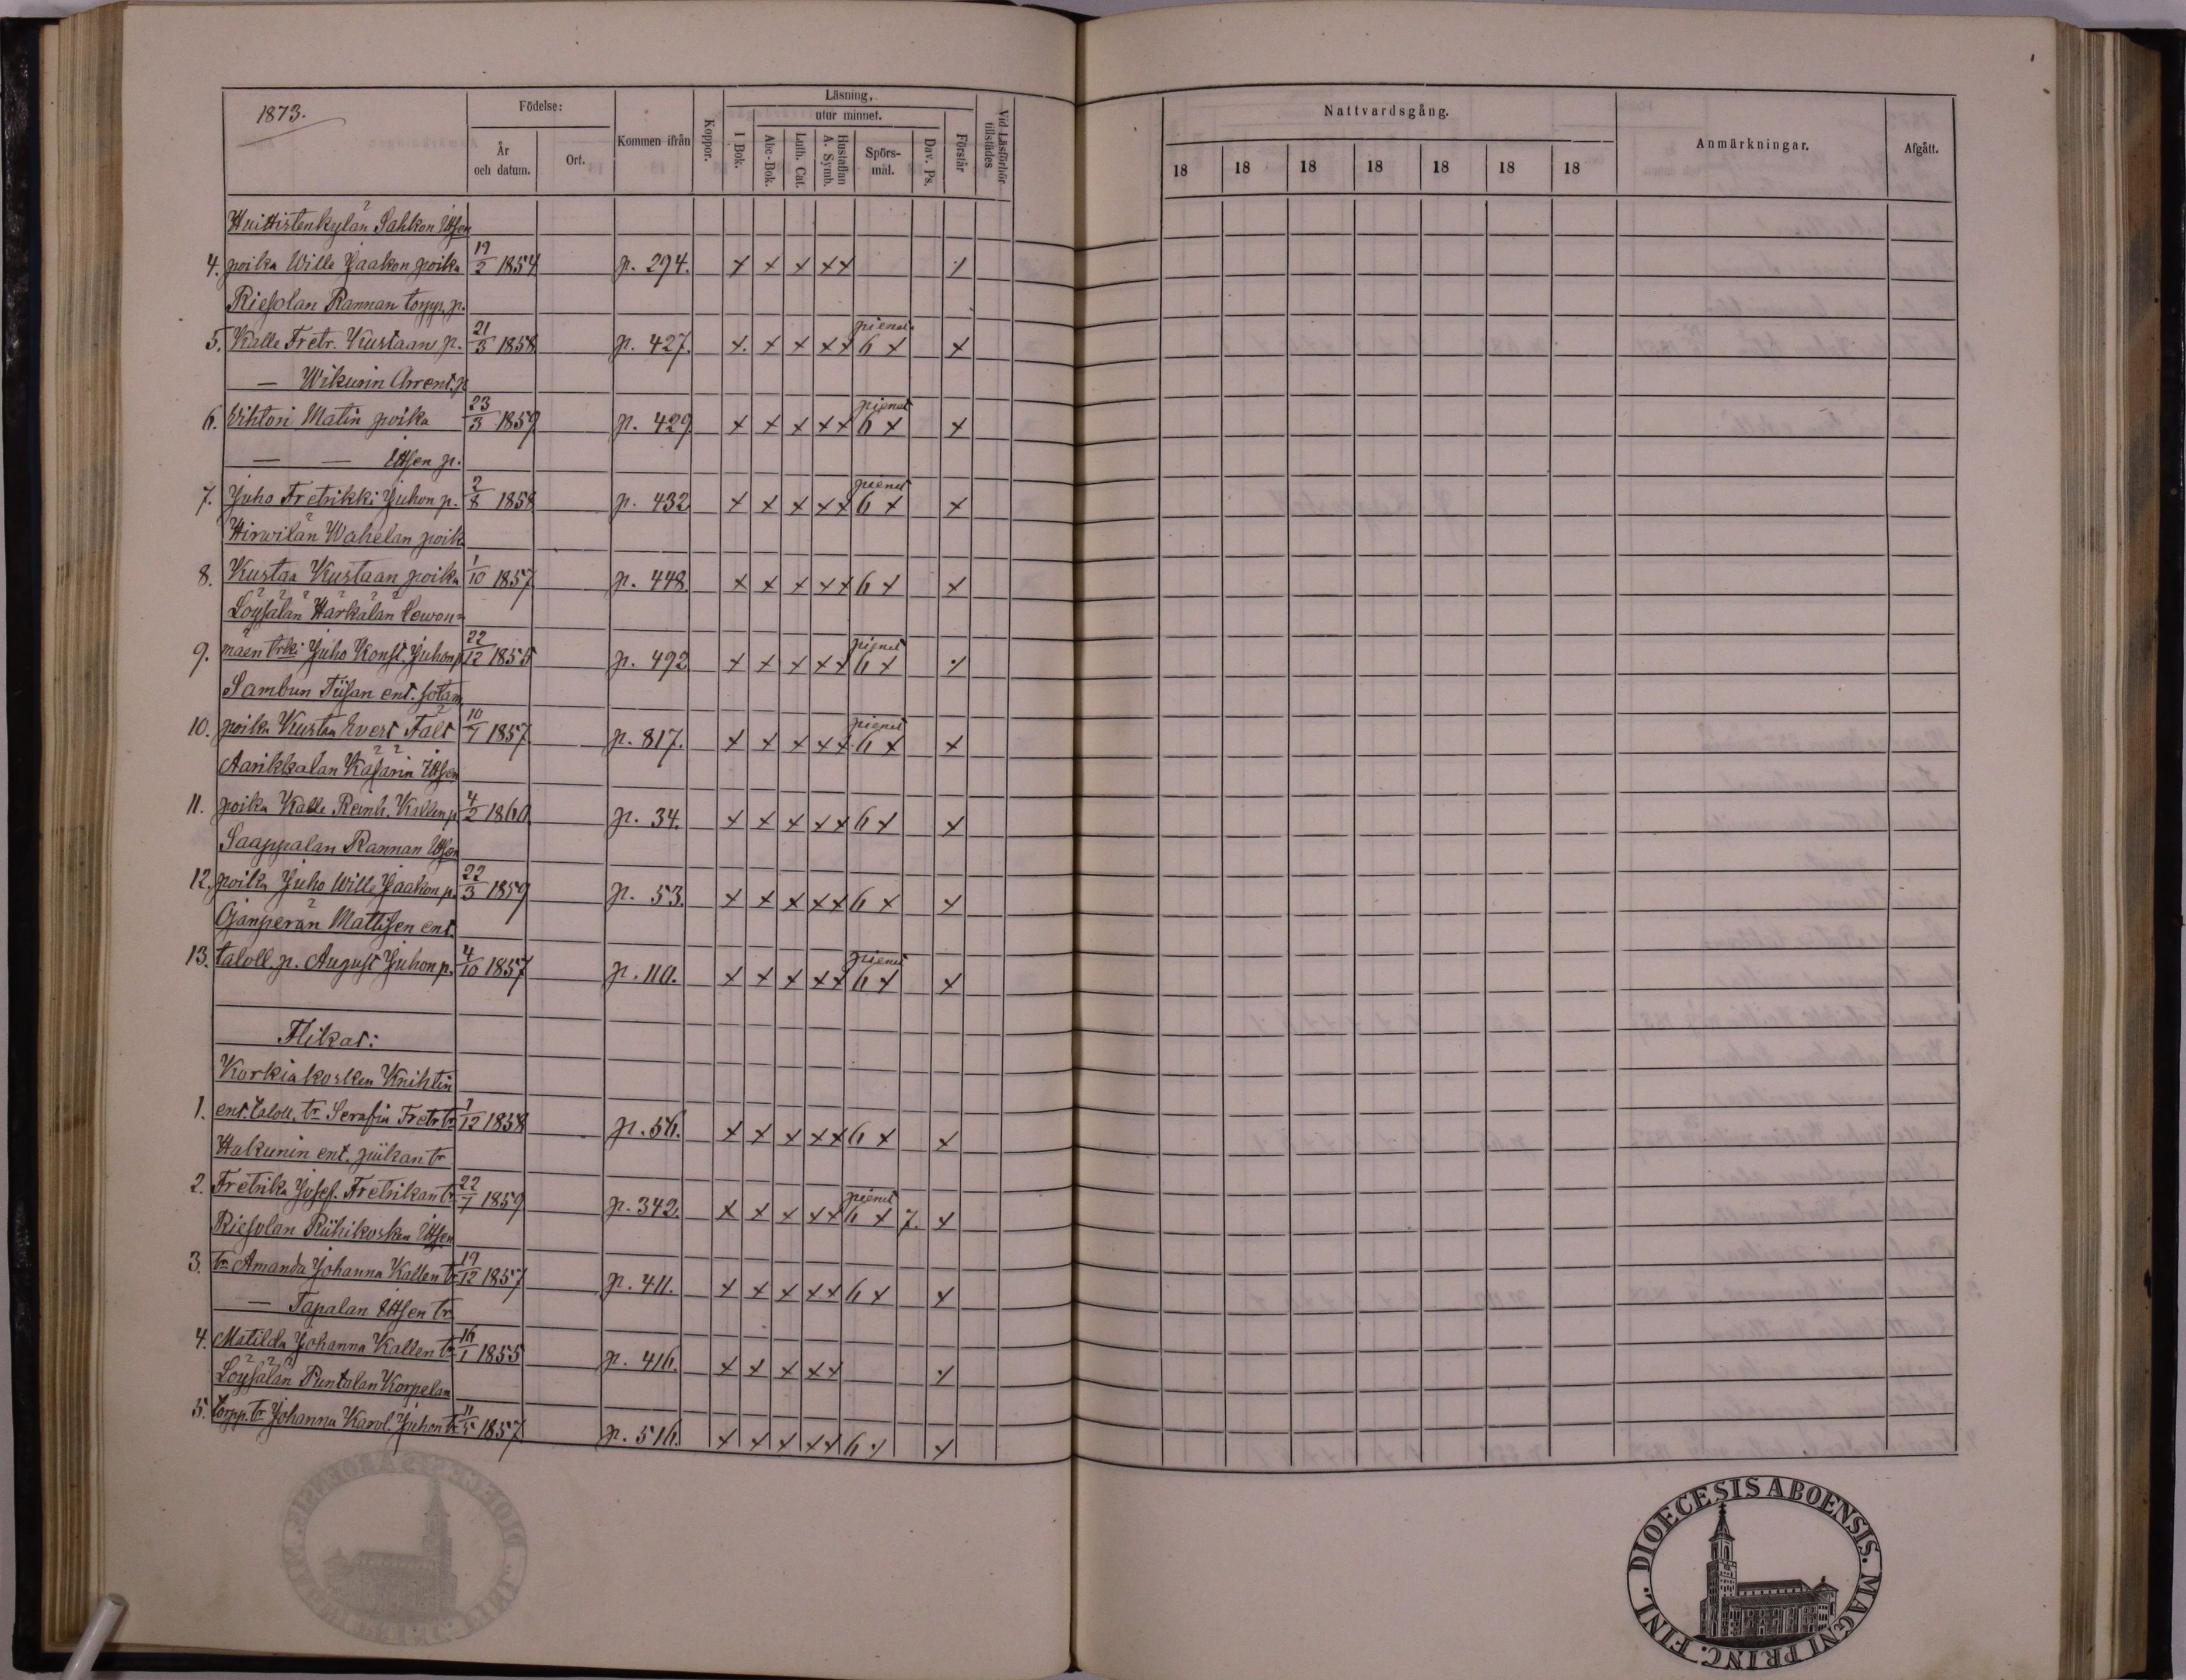 1873.
Födelse:
År och datum.
Ort.
Kommen ifrån
Koppor.
Läsning,
utur minnet.
I Bok.
Abc-Bok.
Luth. Cat.
Hustaflan A. Symb.
Spörs-mål.
Dav. Ps.
Förstår
Vid Läsförhör tillstädes
Nattvardsgång.
18 18 18 18 18 18 18
Anmärkningar.
Afgått.
Huittistenkylän Sahkon Ittsen
4. poika Wille Jaakon poika 19/2 1854 p. 294. x x x x x /
Riesolan Rannan torpp. p.
5. Kalle Fretr. Kustaan p. 21/5 1858 p. 427. x x x x x pienet 6 x x
— Wikurin Arrent. p.
6. Wihtori Matin poika 23/3 1859 p. 429 x x x x x pienet 6 x x
— — Ittsen p.
7. Juho Fretrikki Juhon p. 2/8 1858 p. 432 x x x x x pienet 6 x x
Hirwilän Wahelan poik
8. Kustaa Kustaan poika 1/10 1857 p. 448. x x x x x 6 x x
Löysälän Härkälän Lewon=
9. mäen trki Juho Konst. Juhon p 22/12 1855 p. 492 x x x x x pienet 6 x /
Sambun Tiisan ent. sotam
10. poika Kustaa Evert Fält 10/7 1857 p. 817. x x x x x pienet 6 x x
Aarikkalan Käsärin Ittsen
11. poika Kalle Reinh. Kallen p 4/2 1860 p. 34. x x x x x 6 x x
Saappalan Rannan Ittsen
12. poika Juho Wille Jaakon p. 22/3 1859 p. 53. x x x x x 6 x x
Ojanperän Mattisen ent.
13. taloll. p. August Juhon p. 4/10 1857 p. 110. x x x x x pienet 6 x x
Flikat:
Korkiakosken Knihtin
1. ent. taloll. tr Serafia Fretr tr 7/12 1858 p. 56. x x x x x 6 x x
Hakunin ent. piikan tr
2. Fretrika Josef. Fretrikan tr 22/7 1859 p. 342. x x x x x pienet 6 x 7. x
Riesolan Riihikosken Ittsen
3. tr Amanda Johanna Kallen tr 19/12 1857 p. 411. x x x x x 6 x x
— Tapalan Ittsen tr
4. Matilda Johanna Kallen tr 16/1 1855 p. 416. x x x x x /
Löysälän Puntalan Korpelan
5. torpp. tr Johanna Karol. Juhon tr 11/5 1857 p. 516. x x x x x 6 / x
DIOECESIS ABOENSIS. MAGNI PRINC. FINL.